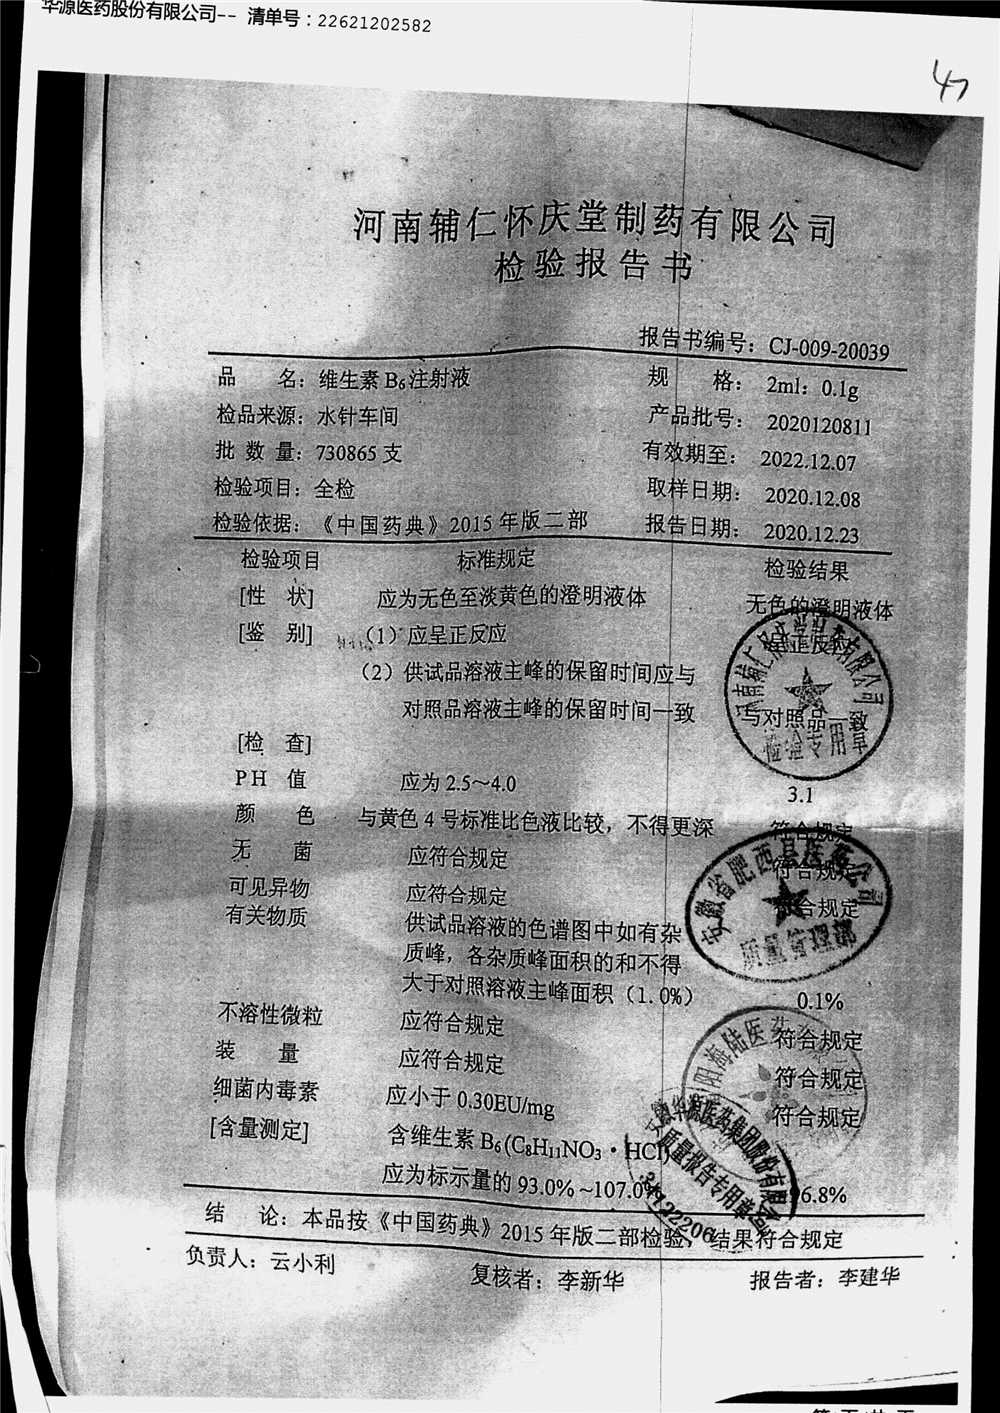 华源医药股份有限公司-- 清单号：22621202582
47
河南辅仁怀庆堂制药有限公司
检验报告书
报告书编号：CJ-009-20039
品 名：维生素 B₆注射液 规 格：2ml：0.1g
检品来源：水针车间 产品批号：2020120811
批 数 量：730865 支 有效期至：2022.12.07
检验项目：全检 取样日期：2020.12.08
检验依据：《中国药典》2015 年版二部 报告日期：2020.12.23
检验项目 标准规定 检验结果
[性 状] 应为无色至淡黄色的澄明液体 无色的澄明液体
[鉴 别] （1）应呈正反应 呈正反应
（2）供试品溶液主峰的保留时间应与
对照品溶液主峰的保留时间一致 与对照品一致
[检 查]
PH 值 应为 2.5～4.0 3.1
颜 色 与黄色 4 号标准比色液比较，不得更深 符合规定
无 菌 应符合规定 符合规定
可见异物 应符合规定 符合规定
有关物质 供试品溶液的色谱图中如有杂
质峰，各杂质峰面积的和不得
大于对照溶液主峰面积（1.0%） 0.1%
不溶性微粒 应符合规定 符合规定
装 量 应符合规定 符合规定
细菌内毒素 应小于 0.30EU/mg 符合规定
[含量测定] 含维生素 B₆(C₈H₁₁NO₃·HCl)
应为标示量的 93.0%~107.0% 96.8%
结 论：本品按《中国药典》2015 年版二部检验，结果符合规定
负责人：云小利 复核者：李新华 报告者：李建华
检验专用章
安徽省肥西县医药公司
质量管理部
阳海陆医药
华源医药集团股份有限公司
质量报告专用章